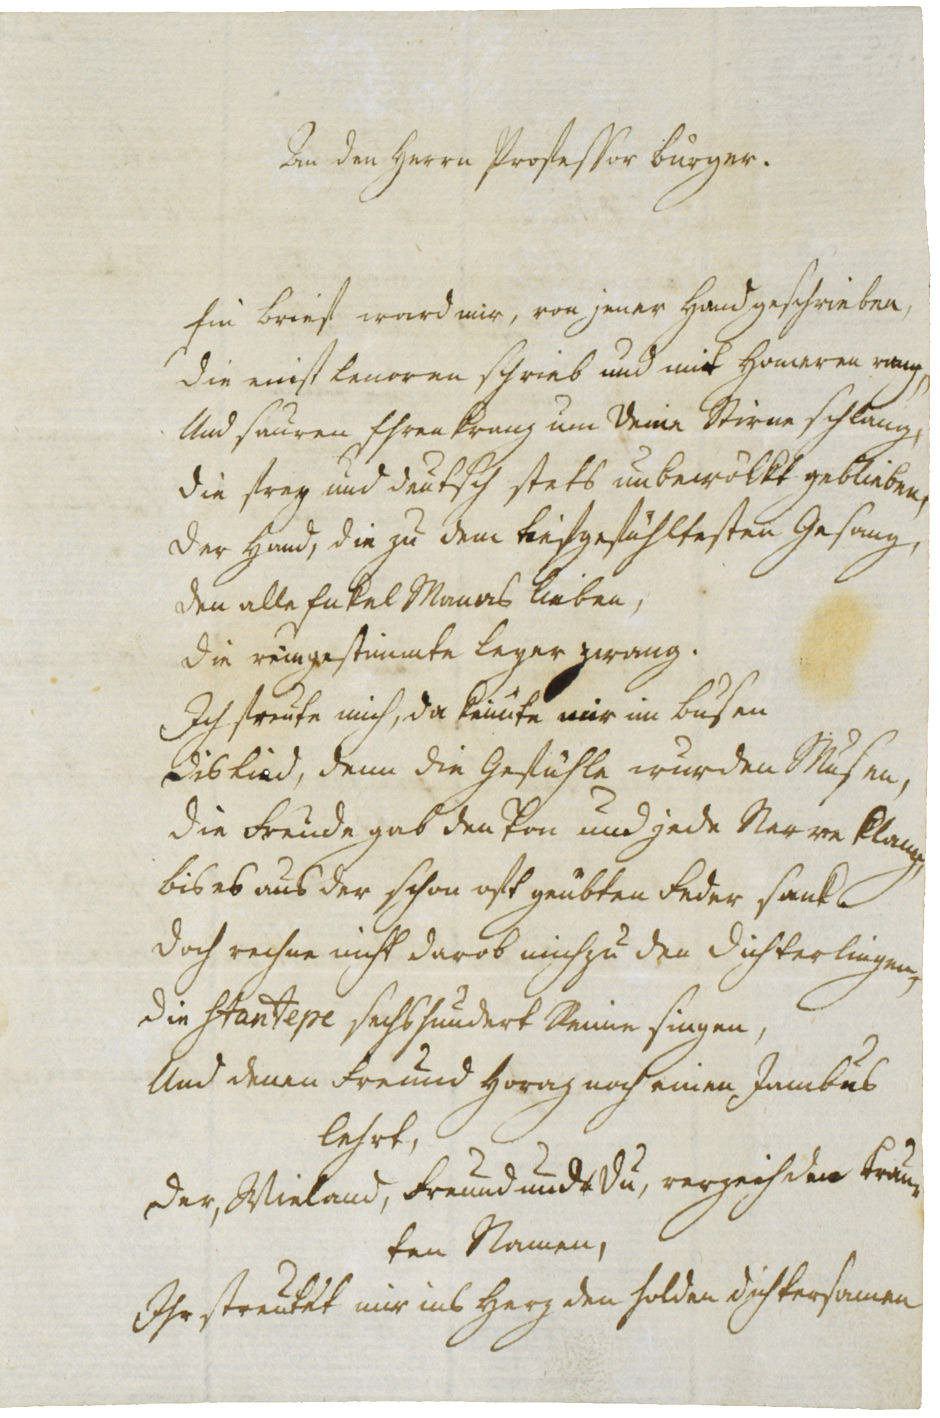 An den Herrn Professor Bürger.
Ein Brief ward mir, von jener Hand geschrieben,
Die einst Lenoren schrieb und mit Homeren rang,
Und sauren Ehrenkranz um Deine Stirne schlang,
Die frey und deutsch stets unbewölkt geblieben,
Der Hand, die zu dem tiefgefühltesten Gesang,
Den alle Enkel Manas lieben,
Die reingestimmte Leyer zwang.
Ich freute mich, da keimte mir im Busen
Dis Lied, denn die Gefühle wurden Musen,
Die Freude gab den Ton und jede Nerve klang,
bis es aus der schon oft geübten Feder sank.
Doch rechne nicht darob mich zu den Dichterlingen,
Die stans pede sechshundert Reime singen,
Und denen Freund Horaz noch einen Jambus
lehrt,
Der, Wieland, Freund und Du, verzeih den trau-
ten Namen,
Ihr streutet mir ins Herz den holden Dichtersamen